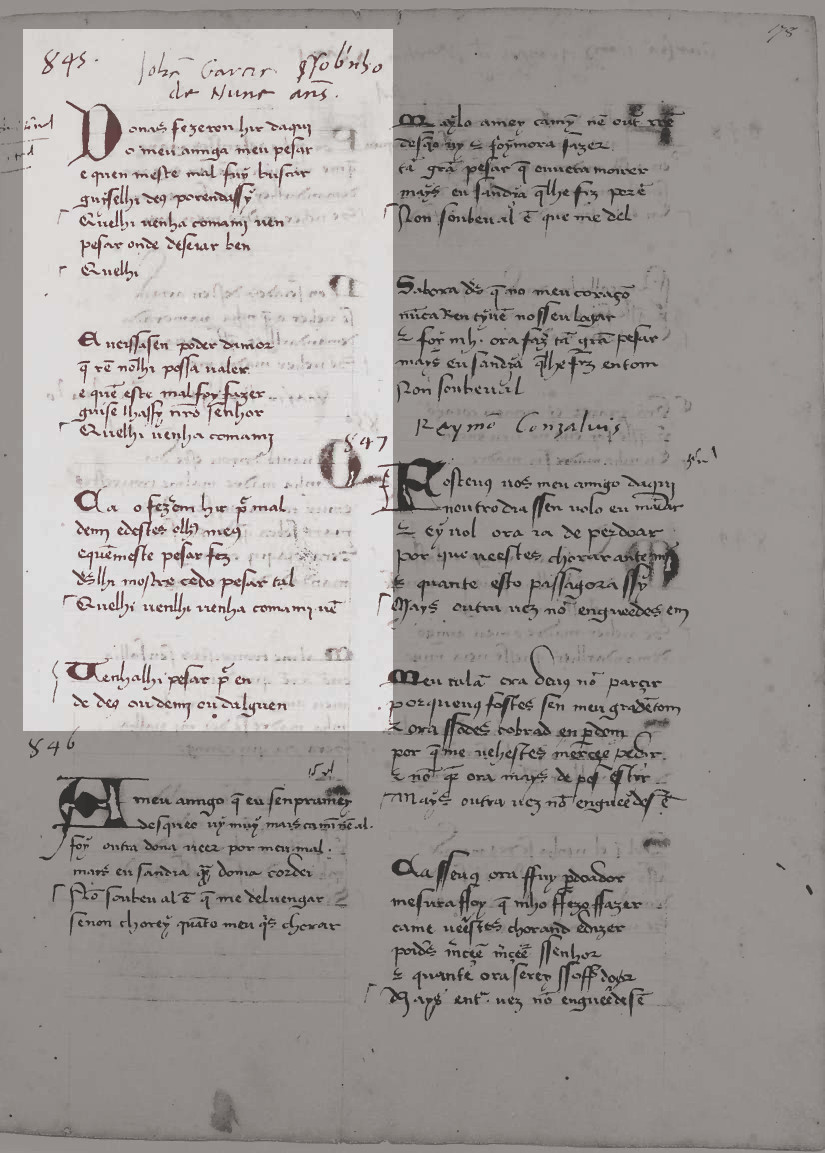 845.
Joham Garcia Sobrinho
de Nuneans.
Donas fezeron hir daqui
o meu amiga meu pesar
e quen meste mal fuy buscar
guyselhi deus porendassy
Quelhi venha comami uen
pesar onde deseiar ben
Quelhi
E veiassen poder damor
q̄ rē nōlhi possa ualer
e quē este mal foy fazer
guiselhassy nr̄o senhor
Quelhi uenha comami
Ca o fezerem hir p̄ mal
demi edestes olhos meus
equemeste pesar fez
d̄slhi mostre cedo pesar tal
Quelhi uenlhi uenha comami uē
Venhalhi pesar p̄ en
de deus ou demi ou dalguen
846
meu amigo q̄ eu senpramey
desqueo uy muy mais ca mī nē al.
foy outra dona ueer por meu mal.
mays eu sandia q̄ doma cordei
Nō soubeu al ē q̄ me del uengar
senon chorey quāto meu q̄s chorar
78
Maylo amey camȳ nē out̄
desq̄o uy foymora fazer
tā grā pesar q̄ ouueramorrer
mays eu sandia q̄lhe frz porē
Non soubeu al ē que me del
Sabora d̄s q̄ no meu coraçō
nūca ren tyuē no sseu logar
foy mh. ora faz̄ tā grā pesar
mays eu sandia q̄lhe frz entom
Non soubeual
Reymō Gonzaluis
847
Fostesuꝯ uos meu amigo daqui
noutro dia ssen uolo eu mādar
eyuol ora ia de perdoar
por que ueestes chorar ante mī
quante esto passagora ssy
Mays outra uez nō engueedes em
Meu tala ora deuꝯ nō parcir
porqueuꝯ fostes sen meu gradētom
ora ssodes cobrad en p̄dom
por q̄me uehestes mercee pedir.
nō q̄r ora mays de pos estir
Mays outra uez nō engueedes ē
Ca sseuꝯ ora ffuy p̄doador
mesura ffoy q̄ mho ffezo ffazer
came ueestes chorand edizer
poid̄s m̄cee m̄cee ssenhor
quante ora serey ssoffredor
Mays ent̄. uez nō engueedes ē